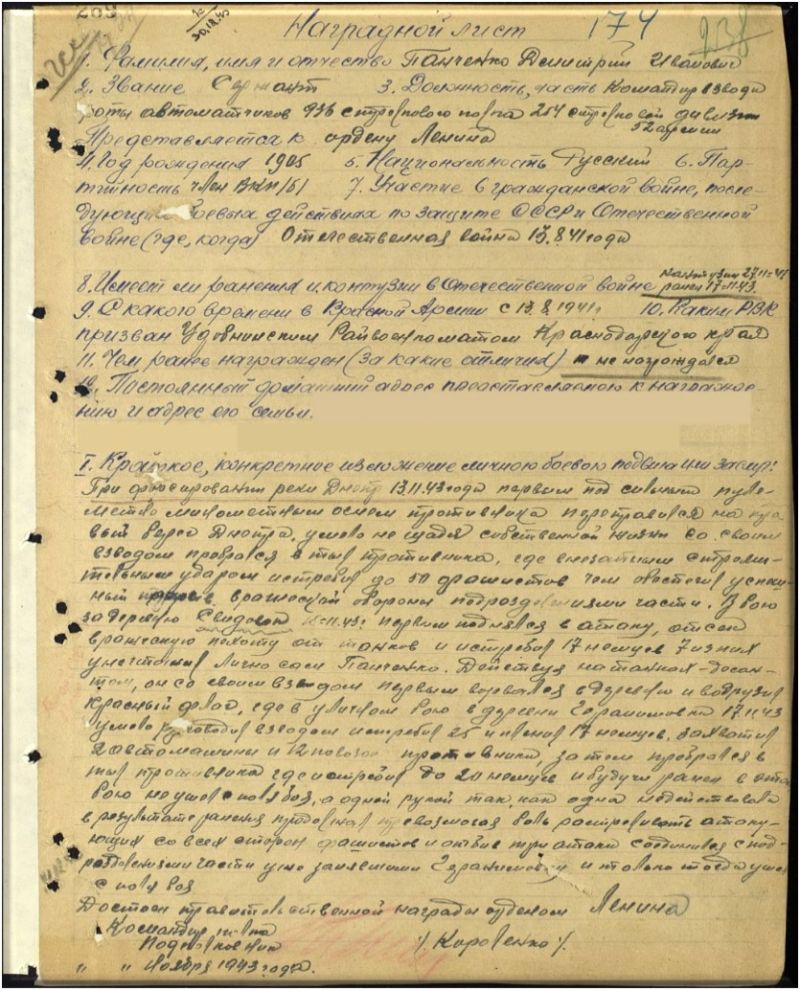 269
30.12.43
Наградной лист 174
238
1. Фамилия, имя и отчество Панченко Дмитрий Иванович
2. Звание Сержант 3. Должность, часть Командир взвода
роты автоматчиков 936 стрелкового полка 254 стрелковой дивизии
52 армии
Представляется к ордену Ленина
4. Год рождения 1905 5. Национальность Русский 6. Пар-
тийность член ВКП/б/ 7. Участие в гражданской войне, после-
дующих боевых действиях по защите СССР и Отечественной
войне (где, когда) Отечественная война 13.8.41 года
8. Имеет ли ранения и контузии в Отечественной войне
ранен 17.11.43.
9. С какого времени в Красной Армии с 13.8.1941г. 10. Каким РВК
призван Райвоенкоматом Краснодарского края
11. Чем ранее награжден (за какие отличия) не награждался
12. Постоянный домашний адрес представляемого к награжде-
нию и адрес его семьи.
I. Краткое, конкретное изложение личного боевого подвига или заслуг:
При форсировании реки Днепр 13.11.43 года первым под сильным пуле-
метно минометным огнем противника переправился на пра-
вый берег Днепра, умело не щадя собственной жизни со своим
взводом пробрался в тыл противника, где внезапным стреми-
тельным ударом истребил до 50 фашистов чем обеспечил успеш-
ный вражеской обороны подразделениями части. В бою
за деревню Свидовок 11.43г. первым поднялся в атаку, отсек
вражескую пехоту от танков и истребил 17 немцев 7 из них
уничтожил лично сам Панченко. Действуя на танках десан-
том, он со своим взводом первым ворвался в деревню и водрузил
красный флаг, где в уличном бою в деревне 17.11.43
умело руководил взводом истребил 25 и пленил 17 немцев, захватил
автомашины и 12 повозок противника, затем пробрался в
тыл противника где истребил до 20 немцев и будучи ранен в этом
бою не ушел с поля боя, а одной рукой так, как одна не действовала
в результате ранения продолжал превозмогая боль расстреливать атаку-
ющих со всех сторон фашистов и отбив три атаки соединился с под-
разделениями части уже занявшими и только тогда ушел
с поля боя
Достоин правительственной награды орденом Ленина
Командир полка
Подполковник /Короленко/.
" " Ноября 1943 года.